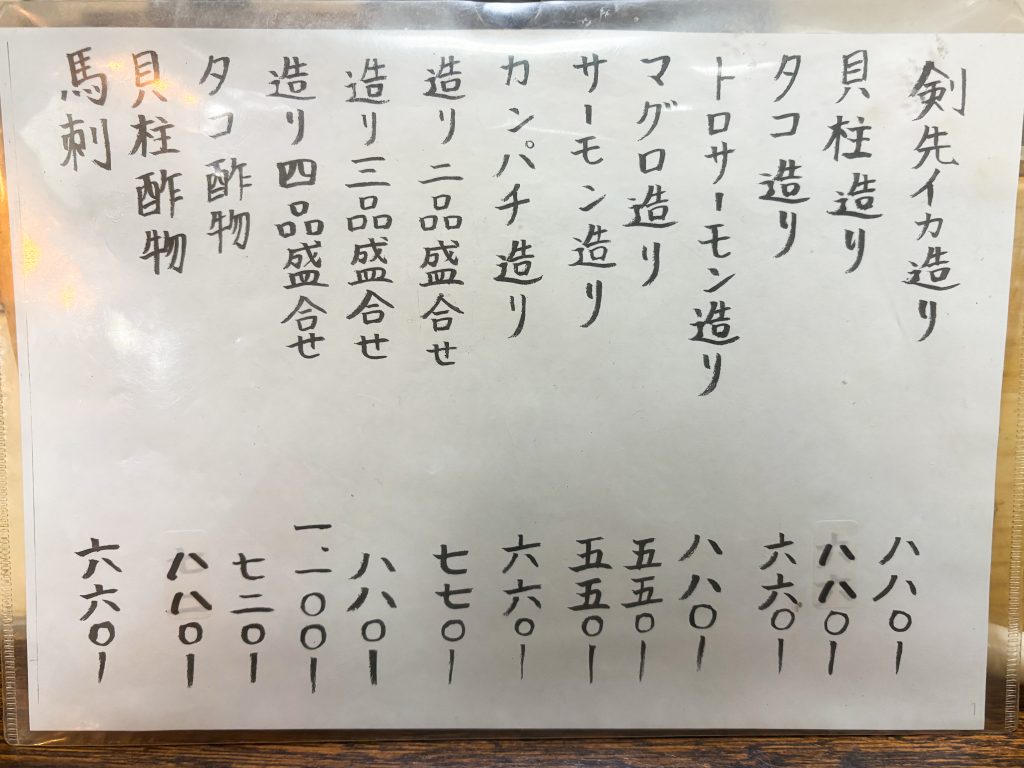 剣先イカ造り 八八〇ー
貝柱造り 八八〇ー
タコ造り 六六〇ー
トロサーモン造り 八八〇ー
マグロ造り 五五〇ー
サーモン造り 五五〇ー
カンパチ造り 六六〇ー
造り二品盛合せ 七七〇ー
造り三品盛合せ 八八〇ー
造り四品盛合せ 一.一〇〇ー
タコ酢物 七二〇ー
貝柱酢物 八八〇ー
馬刺 六六〇ー